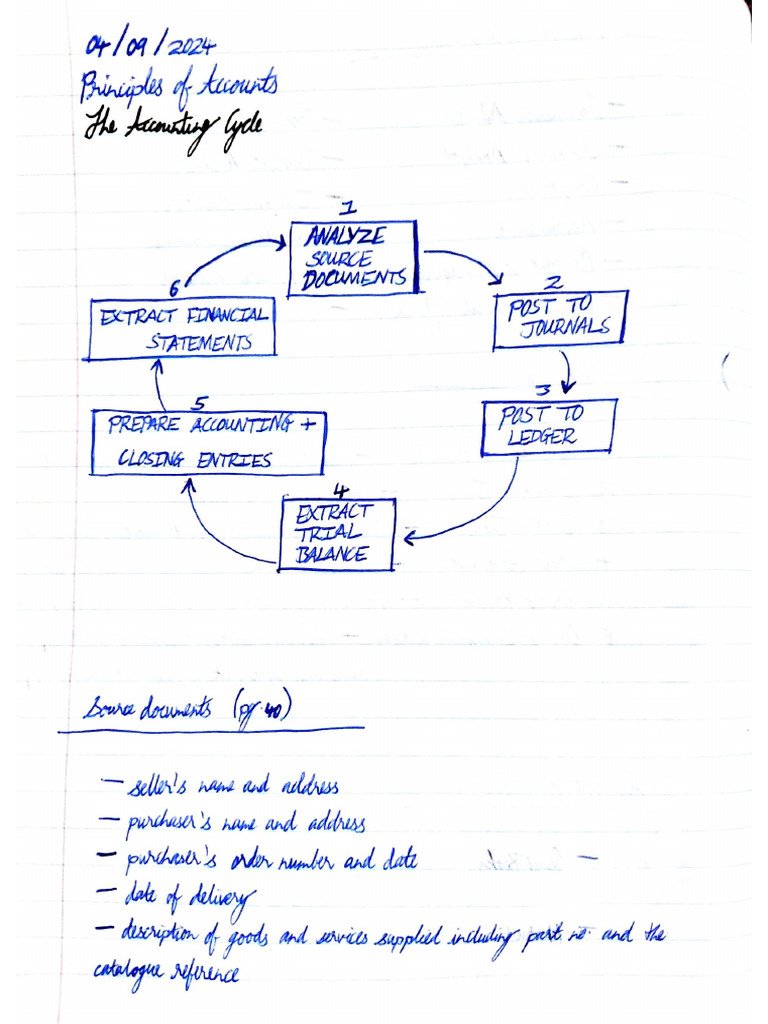 04/09/2024
Principles of Accounts
The Accounting Cycle
1
ANALYZE
SOURCE
DOCUMENTS
2
POST TO
JOURNALS
3
POST TO
LEDGER
4
EXTRACT
TRIAL
BALANCE
5
PREPARE ACCOUNTING +
CLOSING ENTRIES
6
EXTRACT FINANCIAL
STATEMENTS
Source documents (pg. 40)
— seller's name and address
— purchaser's name and address
— purchaser's order number and date
— date of delivery
— description of goods and services supplied including part no. and the
catalogue reference